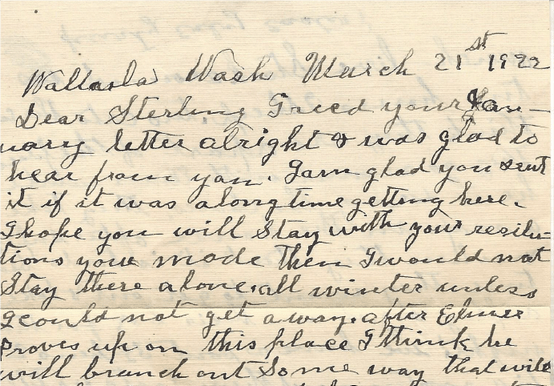 Wallasla Wash March 21st 1922
Dear Sterling I recd your Jan-
uary letter alright & was glad to
hear from you. I am glad you sent
it if it was a long time getting here.
I hope you will stay with your resilu-
tions you made then I would not
Stay there alone all winter unless
I could not get away. after Elmer
Proves up on this place I think he
will branch out Some way that will